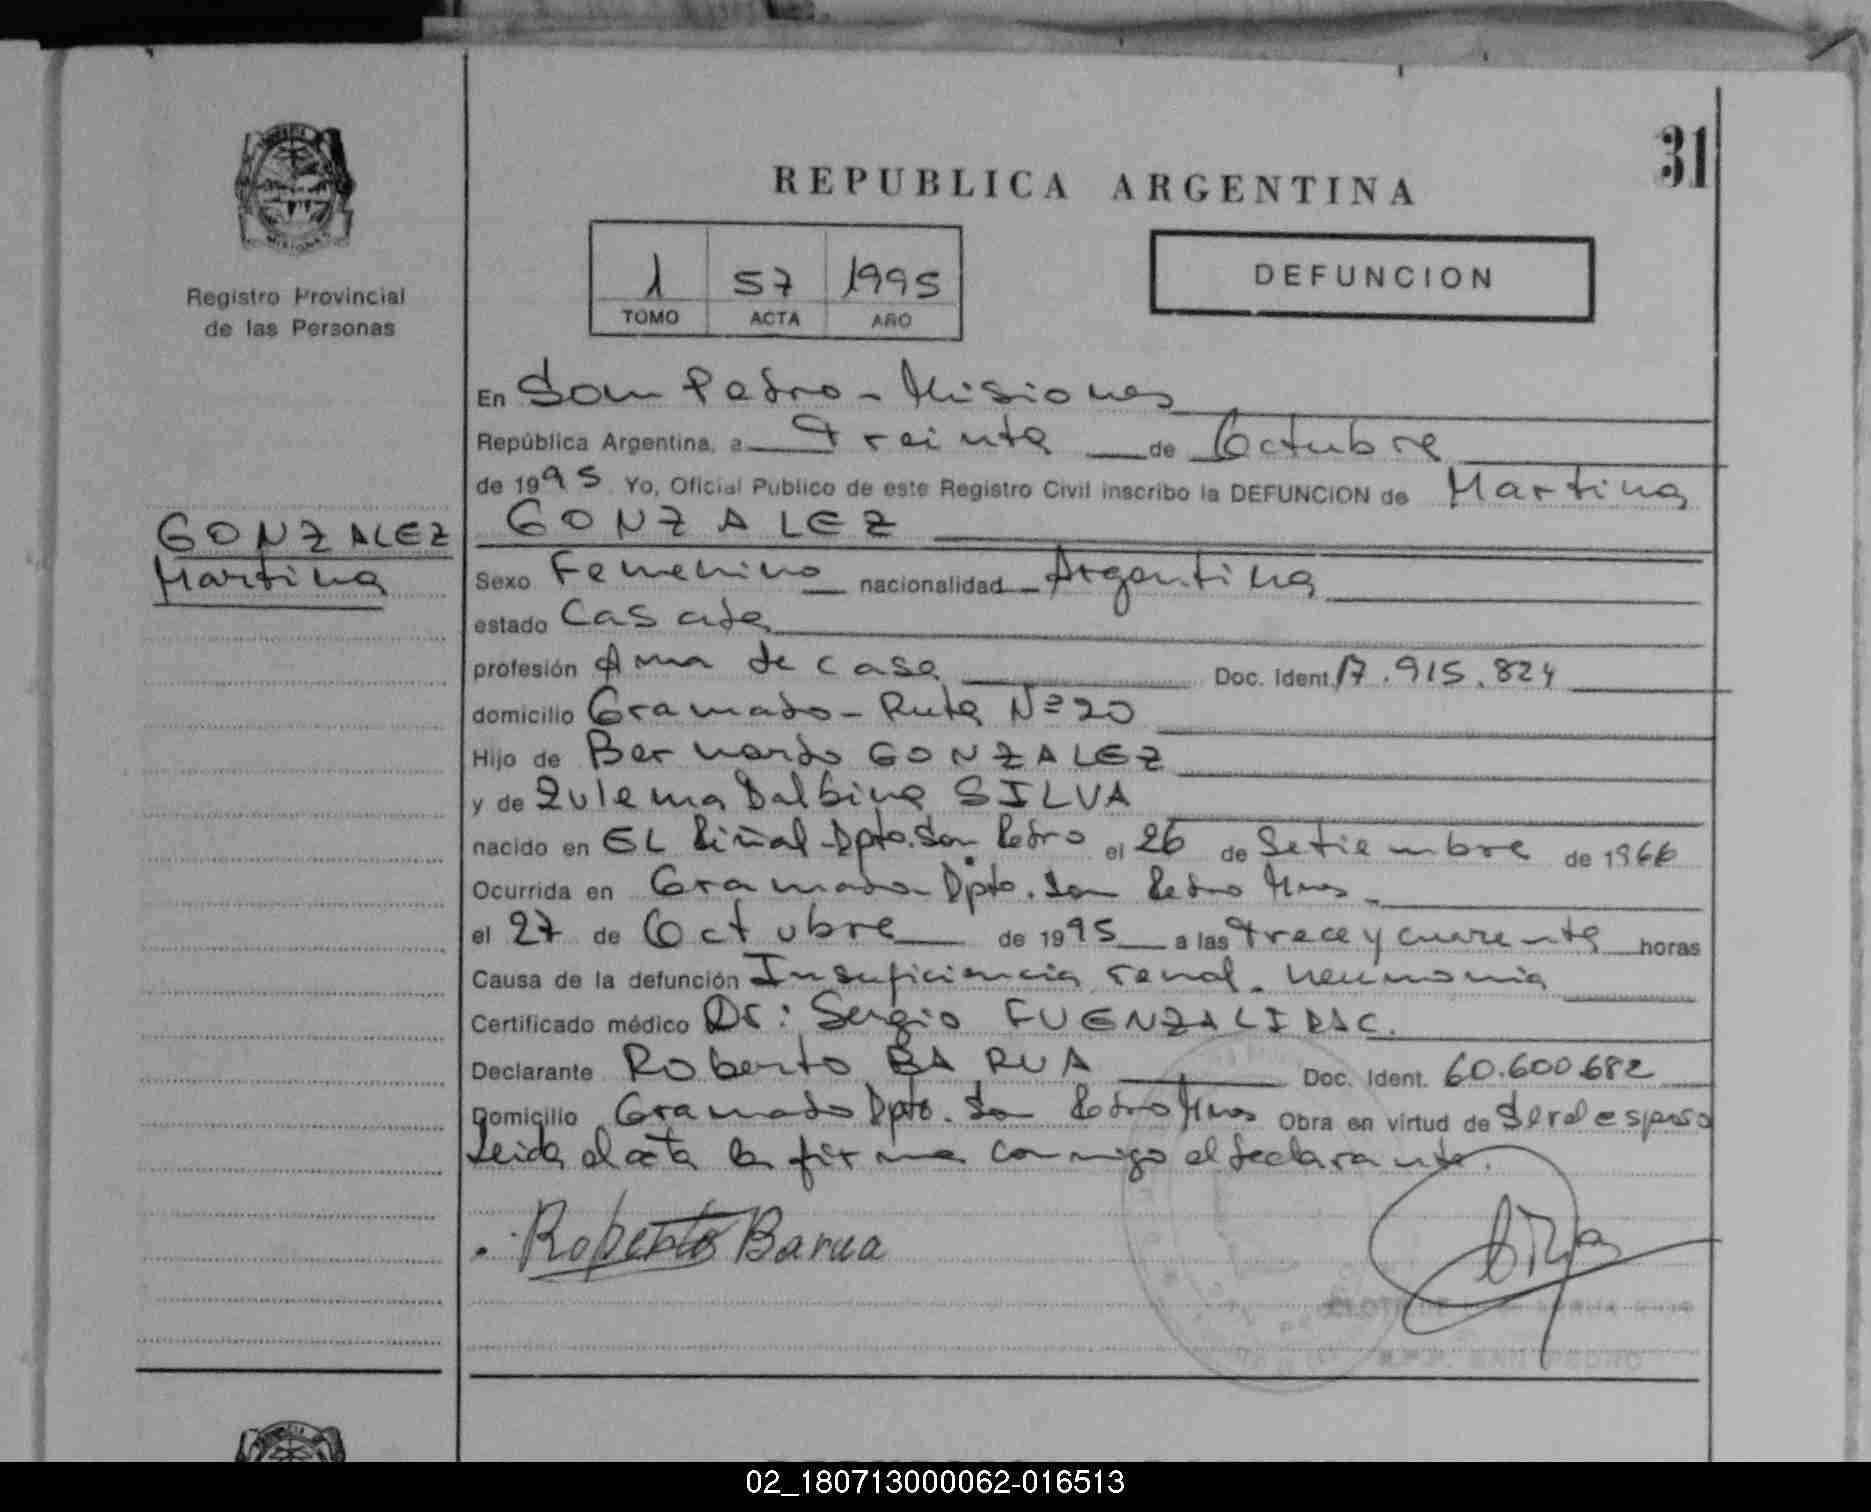 31
REPUBLICA ARGENTINA
MISIONES
Registro Provincial
de las Personas
1 57 1995
TOMO ACTA AÑO
DEFUNCION
GONZALEZ
Martina
En San Pedro - Misiones
República Argentina, a Treinta de Octubre
de 1995 Yo, Oficial Publico de este Registro Civil inscribo la DEFUNCION de Martina
GONZALEZ
Sexo Femenino nacionalidad Argentina
estado Casada
profesión Ama de casa Doc. Ident. 17.915.824
domicilio Gramado - Ruta Nº 20
Hijo de Bernardo GONZALEZ
y de Zulema Balbina SILVA
nacido en EL Piñal - Dpto. San Pedro el 26 de Setiembre de 1966
Ocurrida en Gramado Dpto. San Pedro Mnes -
el 27 de Octubre de 1995 a las trece y cuarenta horas
Causa de la defunción Insuficiencia renal - neumonia
Certificado médico Dr: Sergio FUENZALIDA C.
Declarante Roberto BARUA Doc. Ident. 60.600.682
Domicilio Gramado Dpto. San Pedro Mnes Obra en virtud de Ser el esposo
Leida el acta la firma conmigo el declarante.
Roberto Barua
SAN PEDRO
02_180713000062-016513